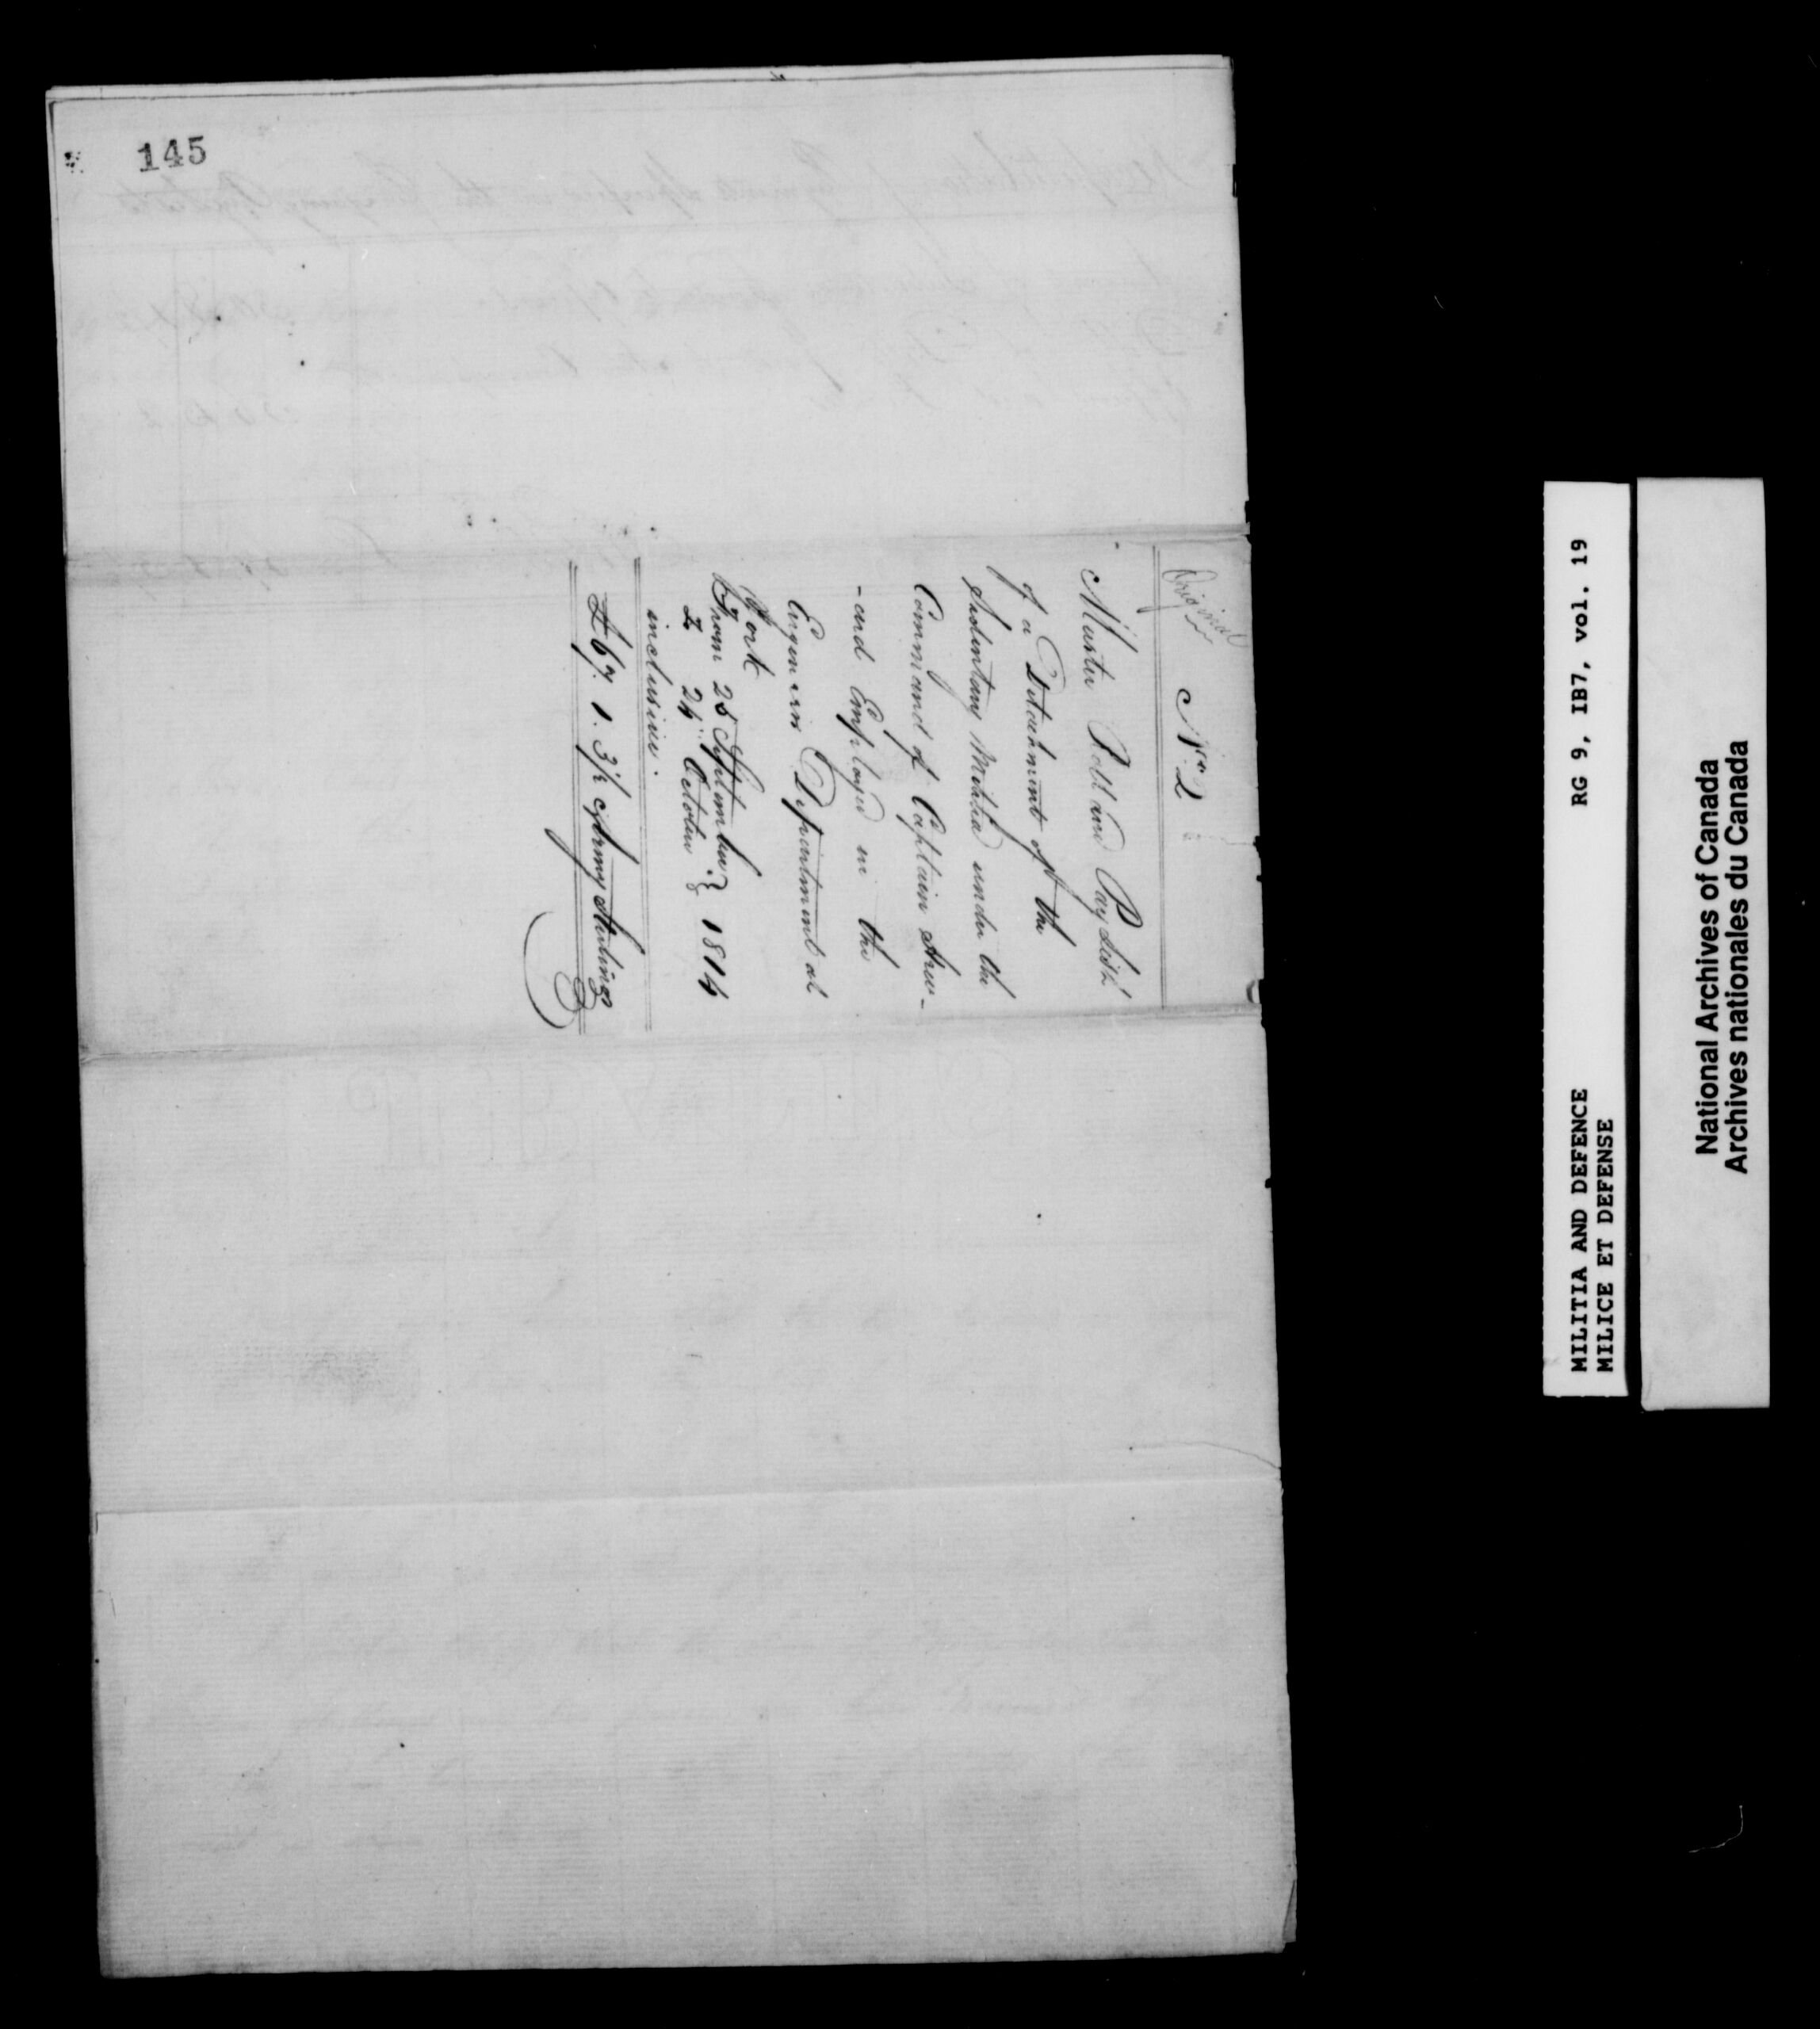 145
Original
No. 2
Muster Roll and Pay List
of a Detachment of the
Sedentary Militia under the
Command of Captain
-ard Employed in the
Engineers Department at
York
From 25 September } 1814
To 24 October
inclusive.
£67. 1. 3½ Army Sterling
RG 9, IB7, vol. 19
MILITIA AND DEFENCE
MILICE ET DEFENSE
National Archives of Canada
Archives nationales du Canada